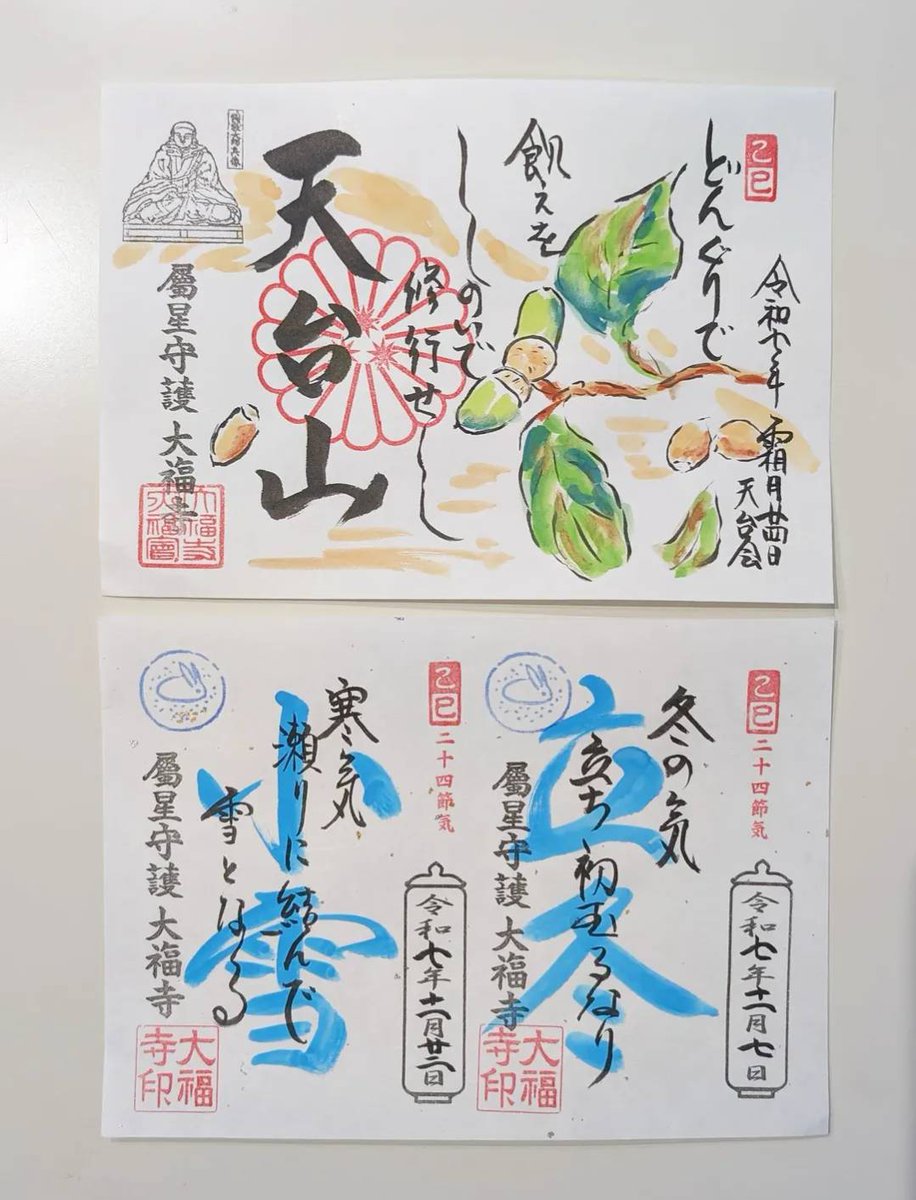 乙巳
令和七年 霜月廿四日
天台会
どんぐりで
飢えを
しのいで
修行せし
天台山
屬星守護 大福寺
乙巳
二十四節気
令和七年十一月七日
冬の気
立ち初むるなり
立冬
屬星守護 大福寺
大福寺印
乙巳
二十四節気
令和七年十一月廿二日
寒気丸
瀬りに結んで
雪となる
小雪
屬星守護 大福寺
大福寺印